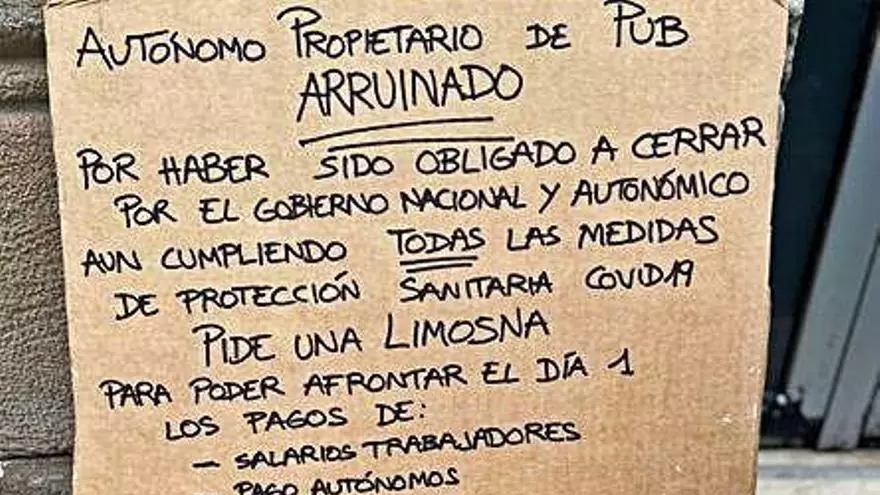 AUTÓNOMO PROPIETARIO DE PUB
ARRUINADO
POR HABER SIDO OBLIGADO A CERRAR
POR EL GOBIERNO NACIONAL Y AUTONÓMICO
AUN CUMPLIENDO TODAS LAS MEDIDAS
DE PROTECCIÓN SANITARIA COVID19
PIDE UNA LIMOSNA
PARA PODER AFRONTAR EL DÍA 1
LOS PAGOS DE:
- SALARIOS TRABAJADORES
PAGO AUTÓNOMOS